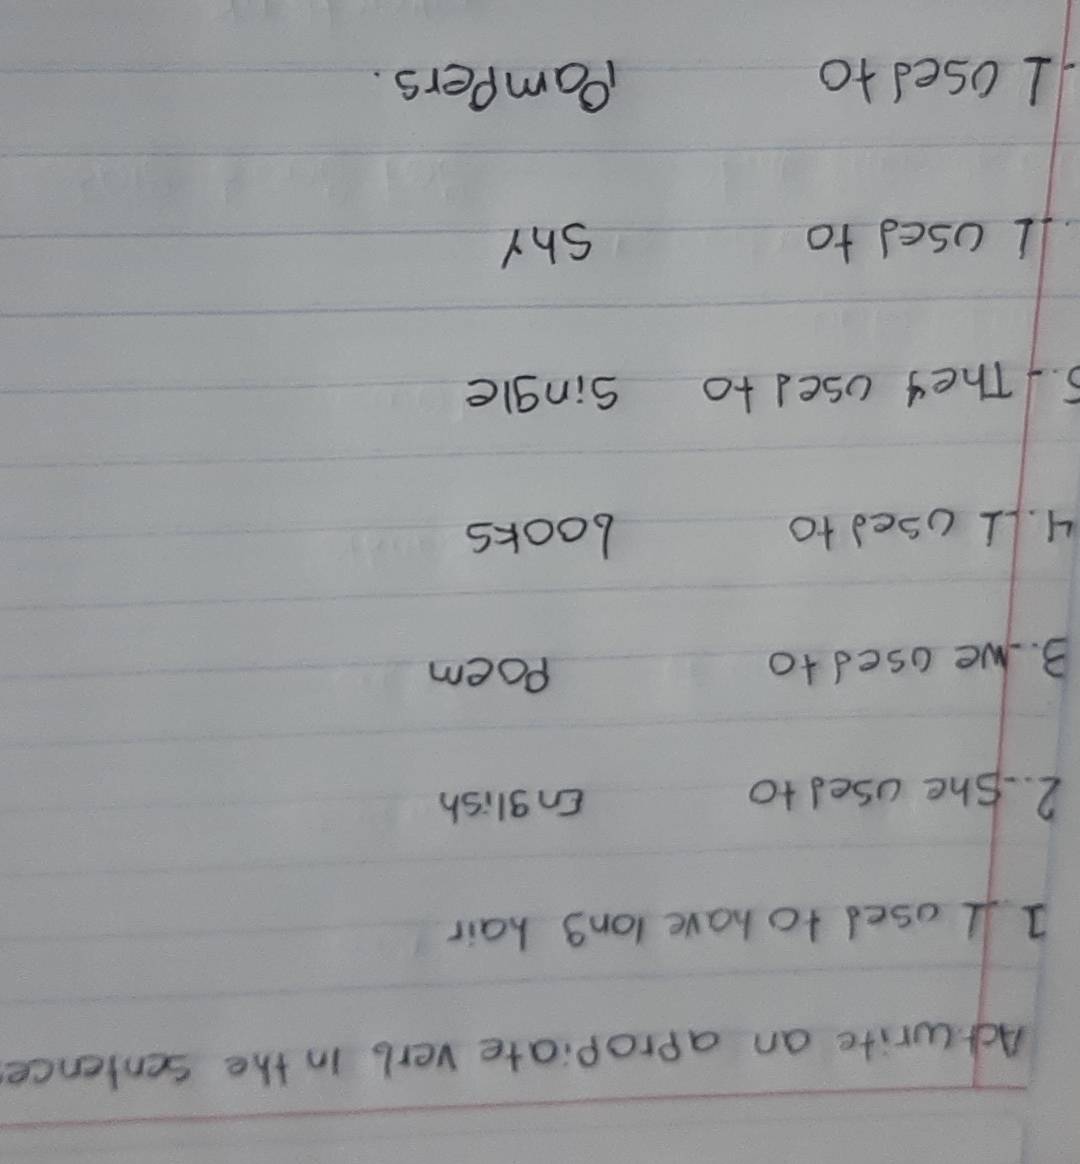 Act write an apropiate verb in the sentence
1.- I used to have long hair
2.- She used to English
3.- We used to Poem
4.- I used to books
5.- They used to single
.- I used to shy
.- I used to Pampers.